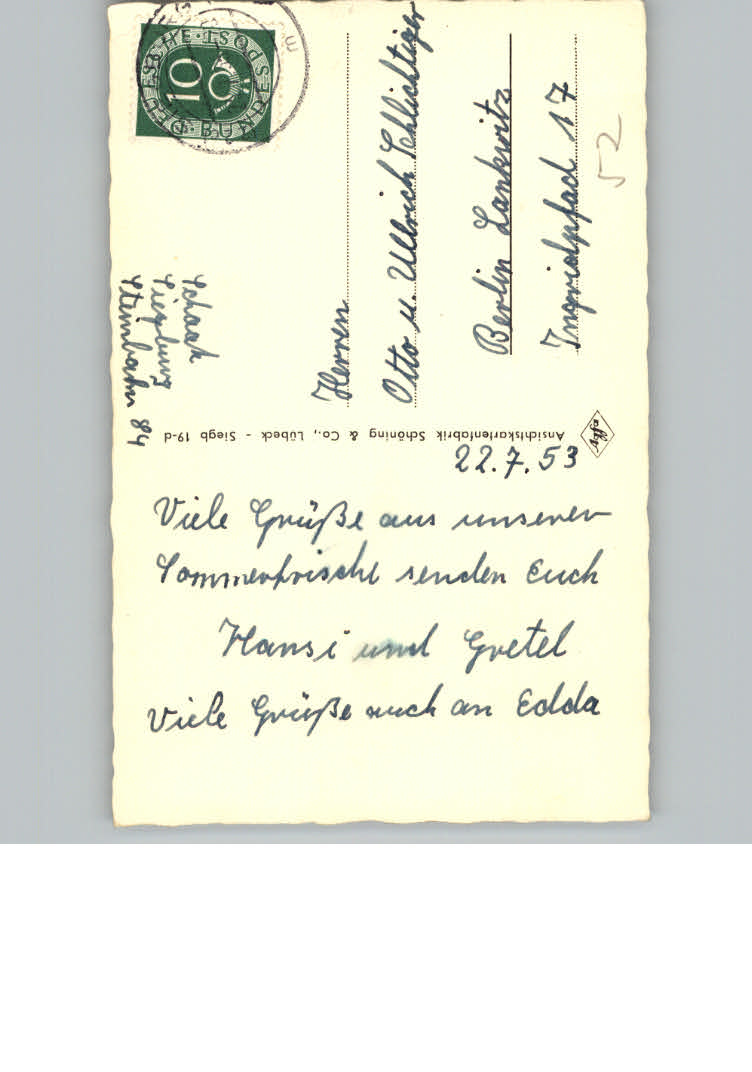 DEUTSCHE BUNDESPOST
10
Schaak
Siegburg
Steinbahn 84
Herren
Otto u. Ullrich Schlichtiger
Berlin Lankwitz
Ingridpfad 17
52
Ansichtskartenfabrik Schöning & Co., Lübeck - Siegb 19-d
22.7.53
Viele Grüße aus unserer
Sommerfrische senden Euch
Hansi und Gretel
Viele Grüße auch an Edda